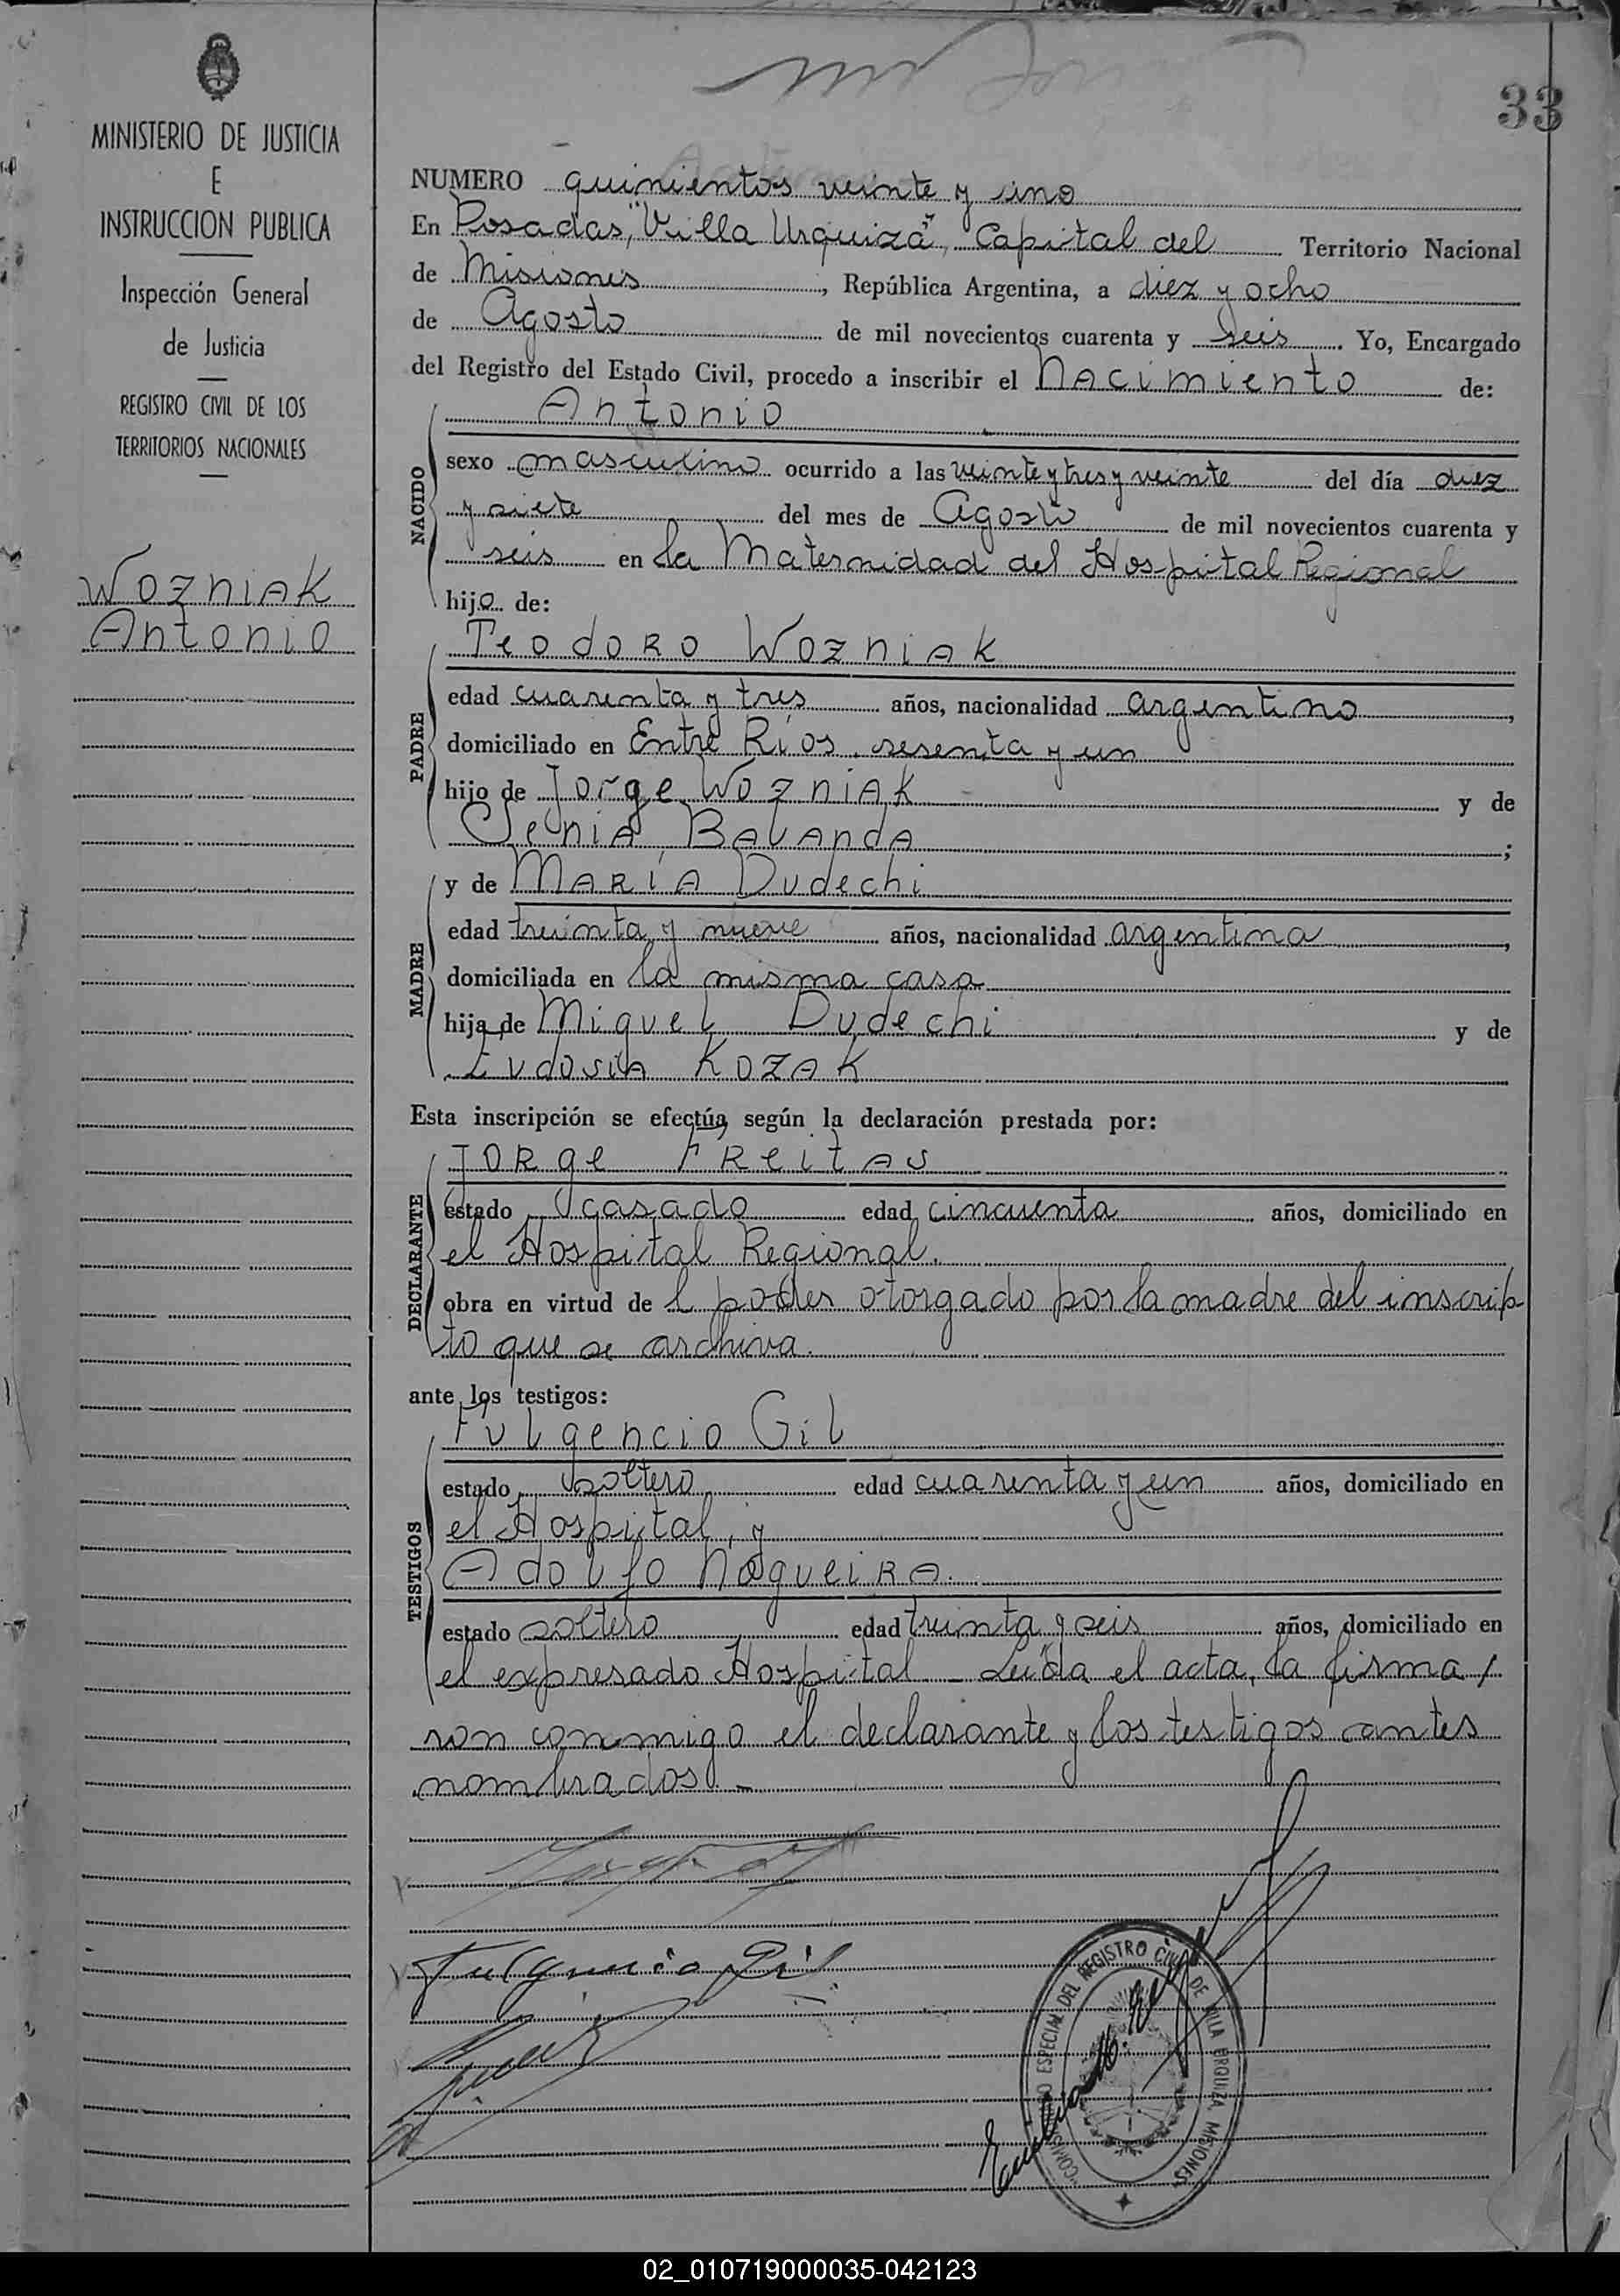 33
MINISTERIO DE JUSTICIA
E
INSTRUCCION PUBLICA
Inspección General
de Justicia
REGISTRO CIVIL DE LOS
TERRITORIOS NACIONALES
Wozniak
Antonio
NUMERO quinientos veinte y uno
En Posadas, "Villa Urquiza", Capital del Territorio Nacional
de Misiones, República Argentina, a diez y ocho
de Agosto de mil novecientos cuarenta y seis. Yo, Encargado
del Registro del Estado Civil, procedo a inscribir el Nacimiento de:
Antonio
NACIDO
sexo masculino ocurrido a las veinte y tres y veinte del día diez
y siete del mes de Agosto de mil novecientos cuarenta y
seis en la Maternidad del Hospital Regional
hijo de:
Teodoro Wozniak
PADRE
edad cuarenta y tres años, nacionalidad argentino,
domiciliado en Entre Ríos, sesenta y un
hijo de Jorge Wozniak y de
Senia Balanda;
MADRE
y de María Dudechi
edad treinta y nueve años, nacionalidad argentina,
domiciliada en la misma casa
hija de Miguel Dudechi y de
Eudosia Kozak
Esta inscripción se efectúa según la declaración prestada por:
DECLARANTE
Jorge Freitas
estado casado edad cincuenta años, domiciliado en
el Hospital Regional.
obra en virtud de l poder otorgado por la madre del inscrip-
to que se archiva.
ante los testigos:
TESTIGOS
Fulgencio Gil
estado soltero edad cuarenta y un años, domiciliado en
el Hospital, y
Adolfo Nogueira.
estado soltero edad treinta y seis años, domiciliado en
el expresado Hospital - Leída el acta, la firma/
ron conmigo el declarante y los testigos antes
nombrados. -
Fulgencio Gil
COMISARIATO ESPECIAL DEL REGISTRO CIVIL DE VILLA URQUIZA MISIONES
02_010719000035-042123